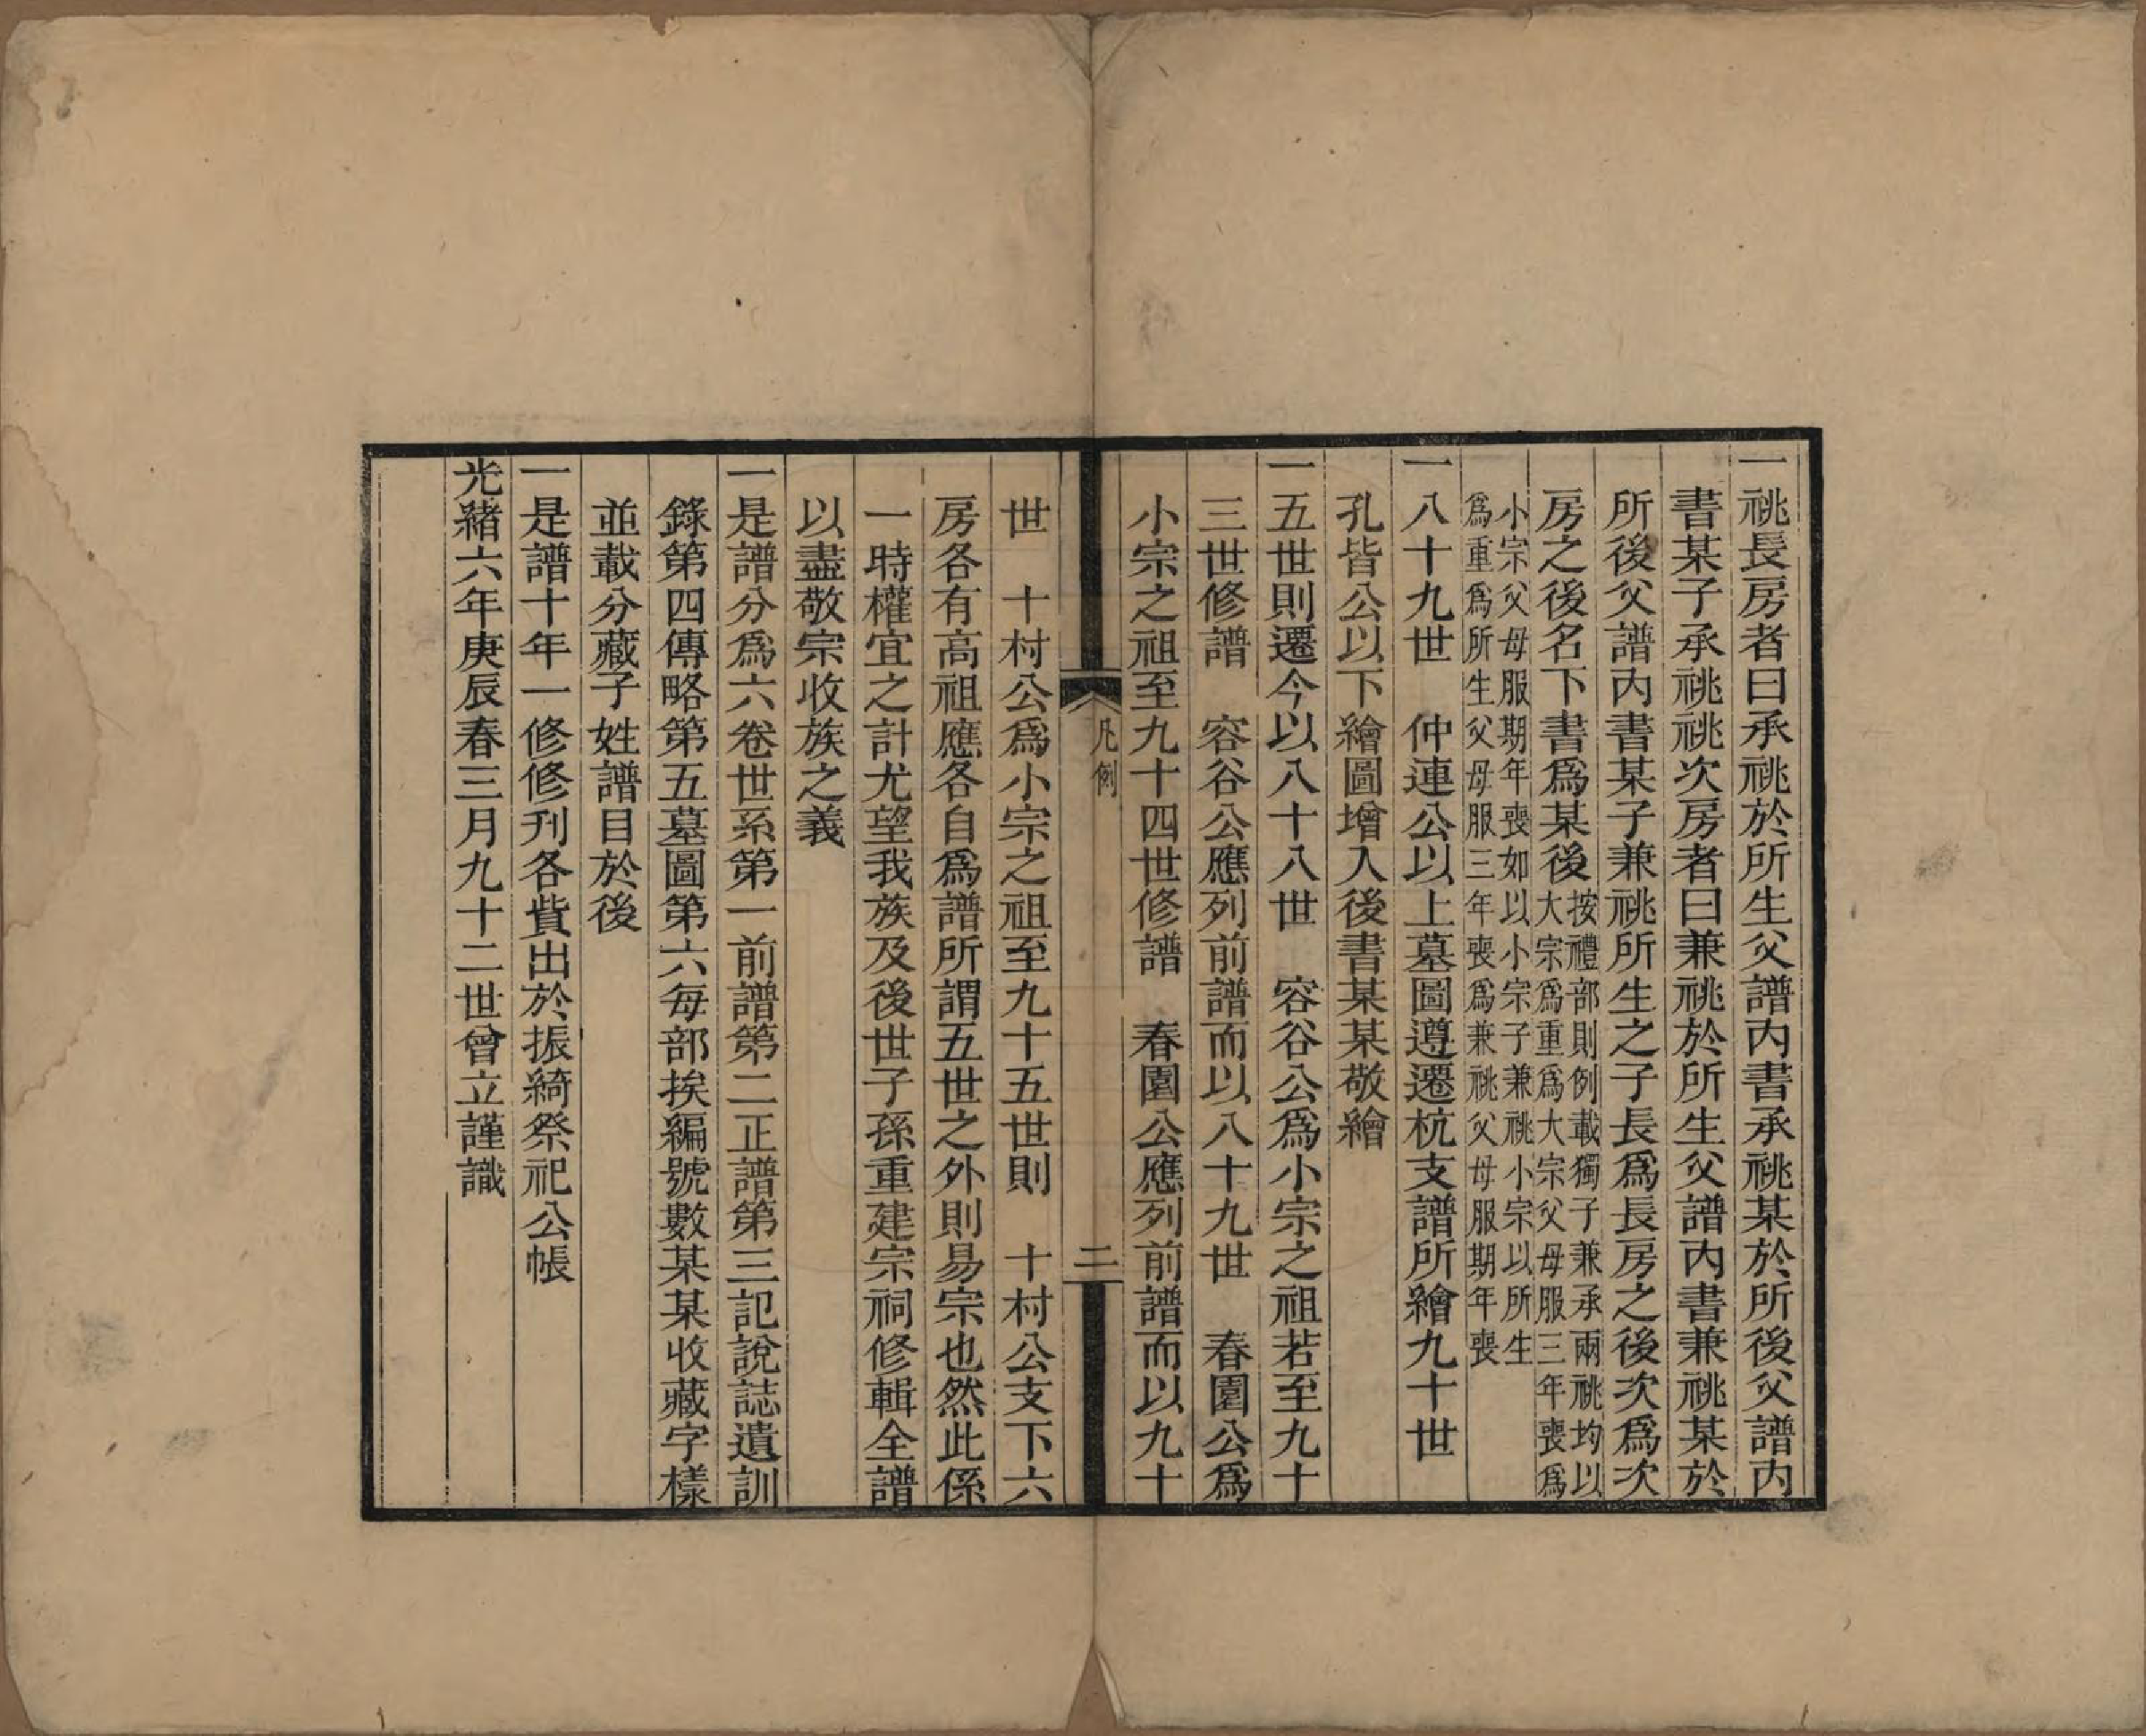 一祧長房者曰承祧於所生父譜內書承祧某於所後父譜內
書某子承祧祧次房者曰兼祧於所生父譜內書兼祧某於
所後父譜內書某子兼祧所生之子長爲長房之後次爲次
房之後名下書爲某後
按禮部則例載獨子兼承兩祧均以
大宗爲重爲大宗父母服三年喪爲
小宗父母服期年喪如以小宗子兼祧小宗以所生
爲重爲所生父母服三年喪爲兼祧父母服期年喪
一八十九世　仲連公以上墓圖遵遷杭支譜所繪九十世
孔皆公以下繪圖增入後書某某敬繪
一五世則遷今以八十八世　容谷公爲小宗之祖若至九十
三世修譜　容谷公應列前譜而以八十九世　春園公爲
小宗之祖至九十四世修譜　春園公應列前譜而以九十
凡例
二
世　十村公爲小宗之祖至九十五世則　十村公支下六
房各有高祖應各自爲譜所謂五世之外則易宗也然此係
一時權宜之計尤望我族及後世子孫重建宗祠修輯全譜
以盡敬宗收族之義
一是譜分爲六卷世系第一前譜第二正譜第三記說誌遺訓
錄第四傳略第五墓圖第六每部挨編號數某某收藏字樣
並載分藏子姓譜目於後
一是譜十年一修修刊各貲出於振綺祭祀公帳
光緒六年庚辰春三月九十二世曾立謹識